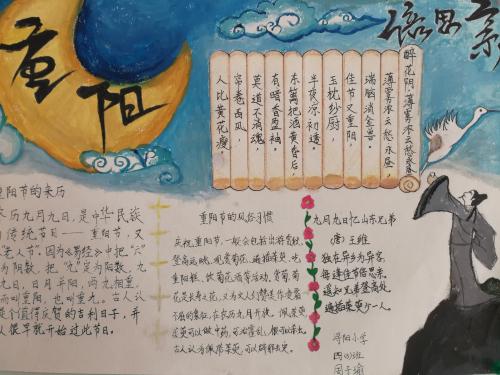 重阳
倍思亲
醉花阴·薄雾浓云愁永昼
薄雾浓云愁永昼,
瑞脑消金兽。
佳节又重阳,
玉枕纱厨,
半夜凉初透。
东篱把酒黄昏后,
有暗香盈袖。
莫道不消魂,
帘卷西风,
人比黄花瘦。
重阳节的来历
农历九月九日,是中华民族
传统节日——重阳节,又
"老人节"。因为《易经》中把"六"
为阴数,把"九"定为阳数,九
九日,日月并阳,两九相重,
而叫重阳,也叫重九。古人认
是个值得庆贺的吉利日子,并
从很早就开始过此节日。
重阳节的风俗习惯
庆祝重阳节,一般会包括出游赏秋,
登高远眺,观赏菊花,遍插茱萸,吃
重阳糕,饮菊花酒等活动。
古人认为佩带茱萸,可以辟邪去灾。
九月九日忆山东兄弟
(唐)王维
独在异乡为异客,
每逢佳节倍思亲。
遥知兄弟登高处,
遍插茱萸少一人。
浔阳小学